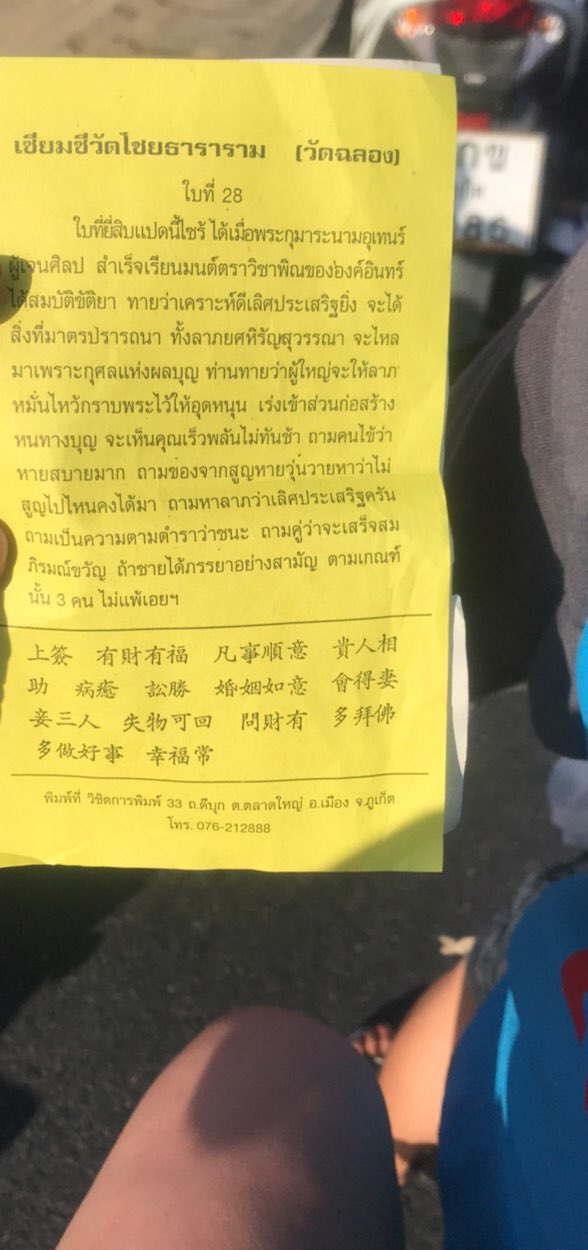 เซียมซีวัดไชยธาราราม (วัดฉลอง)
ใบที่ 28
ใบที่ยี่สิบแปดนี้ไซร้ ได้เมื่อพระกุมาระนามอุเทนร์
ผู้เจนศิลป สำเร็จเรียนมนต์ตราวิชาพิณขององค์อินทร์
ได้สมบัติขัติยา ทายว่าเคราะห์ดีเลิศประเสริฐยิ่ง จะได้
สิ่งที่มาตรปรารถนา ทั้งลาภยศหิรัญสุวรรณา จะไหล
มาเพราะกุศลแห่งผลบุญ ท่านทายว่าผู้ใหญ่จะให้ลาภ
หมั่นไหว้กราบพระไว้ให้อุดหนุน เร่งเข้าส่วนก่อสร้าง
หนทางบุญ จะเห็นคุณเร็วพลันไม่ทันช้า ถามคนไข้ว่า
หายสบายมาก ถามของจากสูญหายวุ่นวายหาว่าไม่
สูญไปไหนคงได้มา ถามหาลาภว่าเลิศประเสริฐครัน
ถามเป็นความตามตำราว่าชนะ ถามคู่ว่าจะเสร็จสม
ภิรมณ์ขวัญ ถ้าชายได้ภรรยาอย่างสามัญ ตามเกณฑ์
นั้น 3 คน ไม่แพ้เอยฯ
上簽 有財有福 凡事順意 貴人相
助 病癒 訟勝 婚姻如意 會得妻
妾三人 失物可回 問財有 多拜佛
多做好事 幸福常
พิมพ์ที่ วิชิตการพิมพ์ 33 ถ.ดีบุก ต.ตลาดใหญ่ อ.เมือง จ.ภูเก็ต
โทร. 076-212888